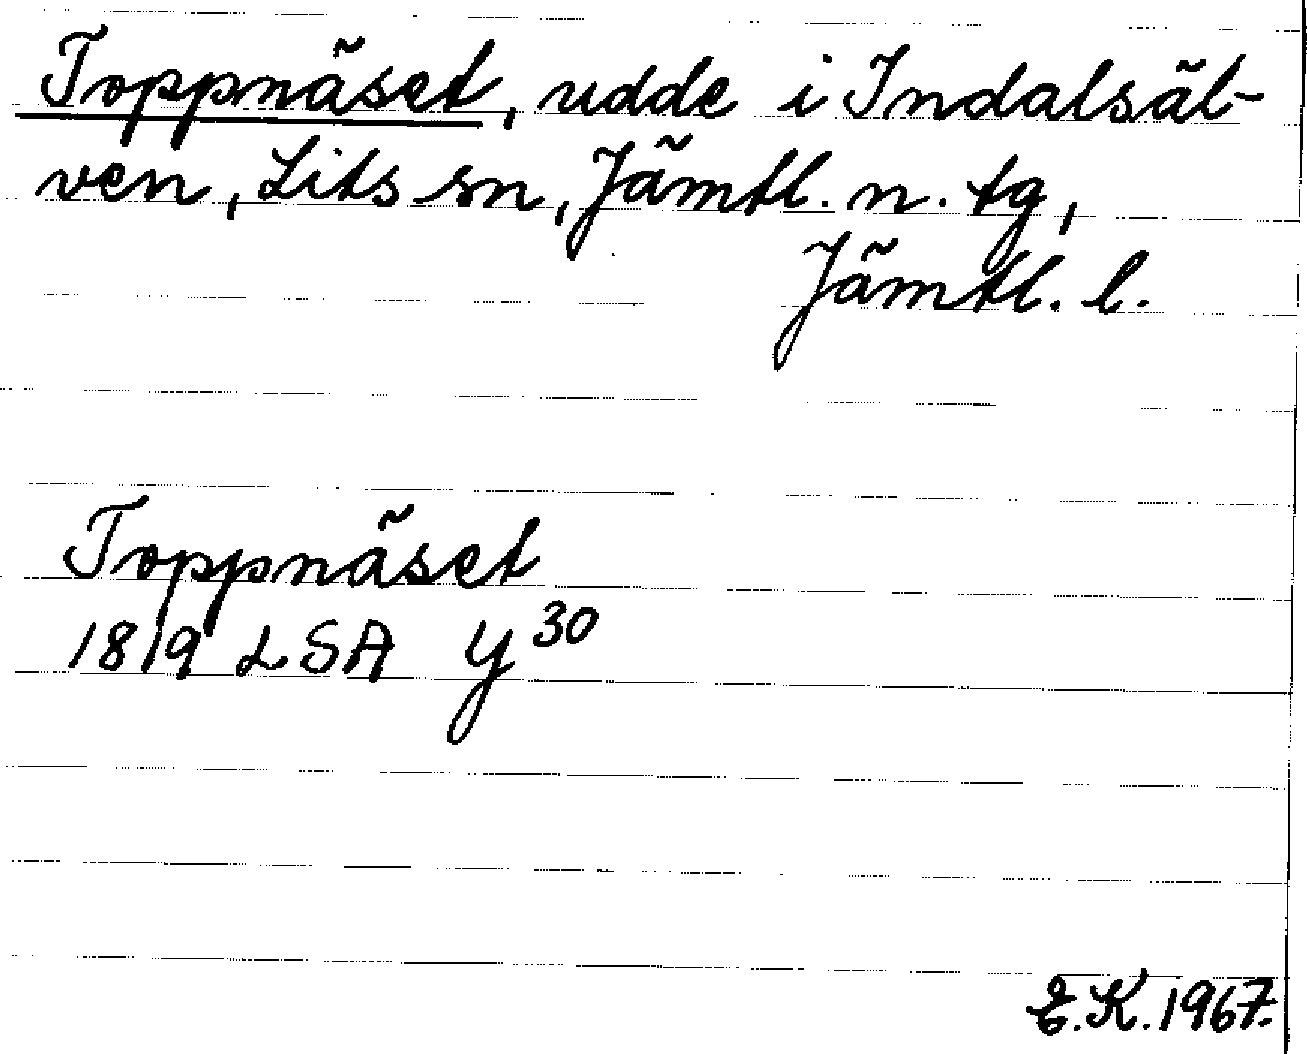 Toppnäset, udde i Indalsäl-
ven, Lits sn, Jämtl. n. tg,
Jämtl. l.
Toppnäset
1819 LSA y 30
E.K. 1967.